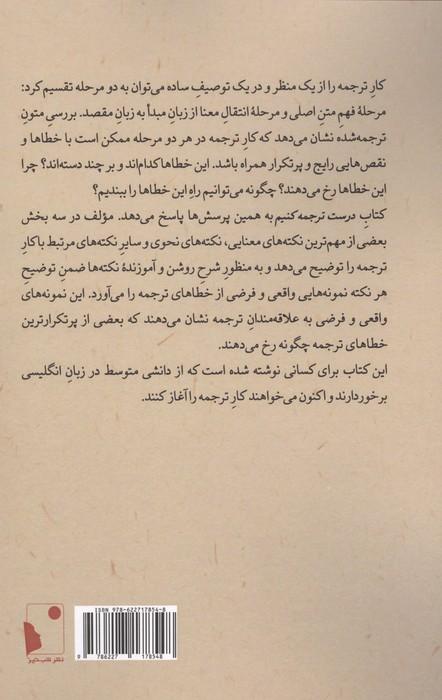 کارِ ترجمه را از یک منظر و در یک توصیفِ ساده می‌توان به دو مرحله تقسیم کرد:
مرحلهٔ فهمِ متنِ اصلی و مرحلهٔ انتقالِ معنا از زبانِ مبدأ به زبانِ مقصد. بررسیِ متونِ
ترجمه‌شده نشان می‌دهد که کارِ ترجمه در هر دو مرحله ممکن است با خطاها و
نقص‌هایی رایج و پرتکرار همراه باشد. این خطاها کدام‌اند و بر چند دسته‌اند؟ چرا
این خطاها رخ می‌دهند؟ چگونه می‌توانیم راهِ این خطاها را ببندیم؟
کتابِ درست ترجمه کنیم به همین پرسش‌ها پاسخ می‌دهد. مؤلف در سه بخش
بعضی از مهم‌ترین نکته‌های معنایی، نکته‌های نحوی و سایرِ نکته‌های مرتبط با کارِ
ترجمه را توضیح می‌دهد و به منظورِ شرحِ روشن و آموزندهٔ نکته‌ها ضمنِ توضیحِ
هر نکته نمونه‌هایی واقعی و فرضی از خطاهای ترجمه را می‌آورد. این نمونه‌های
واقعی و فرضی به علاقه‌مندانِ ترجمه نشان می‌دهند که بعضی از پرتکرارترین
خطاهای ترجمه چگونه رخ می‌دهند.
این کتاب برای کسانی نوشته شده است که از دانشی متوسط در زبانِ انگلیسی
برخوردارند و اکنون می‌خواهند کارِ ترجمه را آغاز کنند.
ISBN 978-622717854-8
9 786227 178548